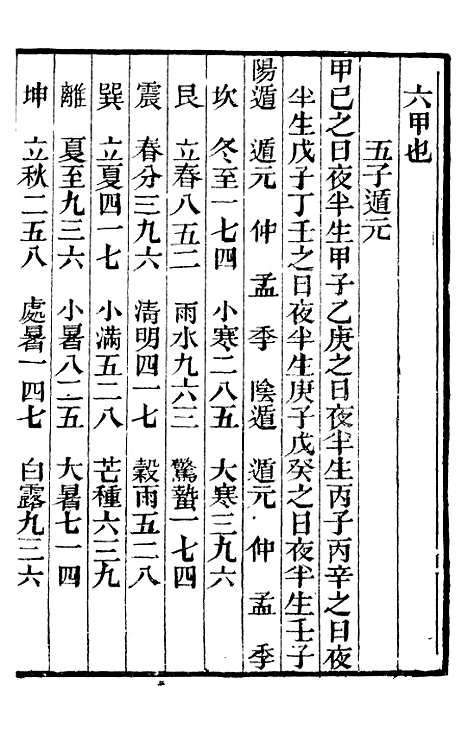 六甲也
五子遁元
甲己之日夜半生甲子乙庚之日夜半生丙子丙辛之日夜
半生戊子丁壬之日夜半生庚子戊癸之日夜半生壬子
陽遁 遁元 仲 孟 季 陰遁 遁元 仲 孟 季
坎 冬至一七四 小寒二八五 大寒三九六
艮 立春八五二 雨水九六三 驚蟄一七四
震 春分三九六 淸明四一七 穀雨五二八
巽 立夏四一七 小滿五二八 芒種六三九
離 夏至九三六 小暑八二五 大暑七一四
坤 立秋二五八 處暑一四七 白露九三六